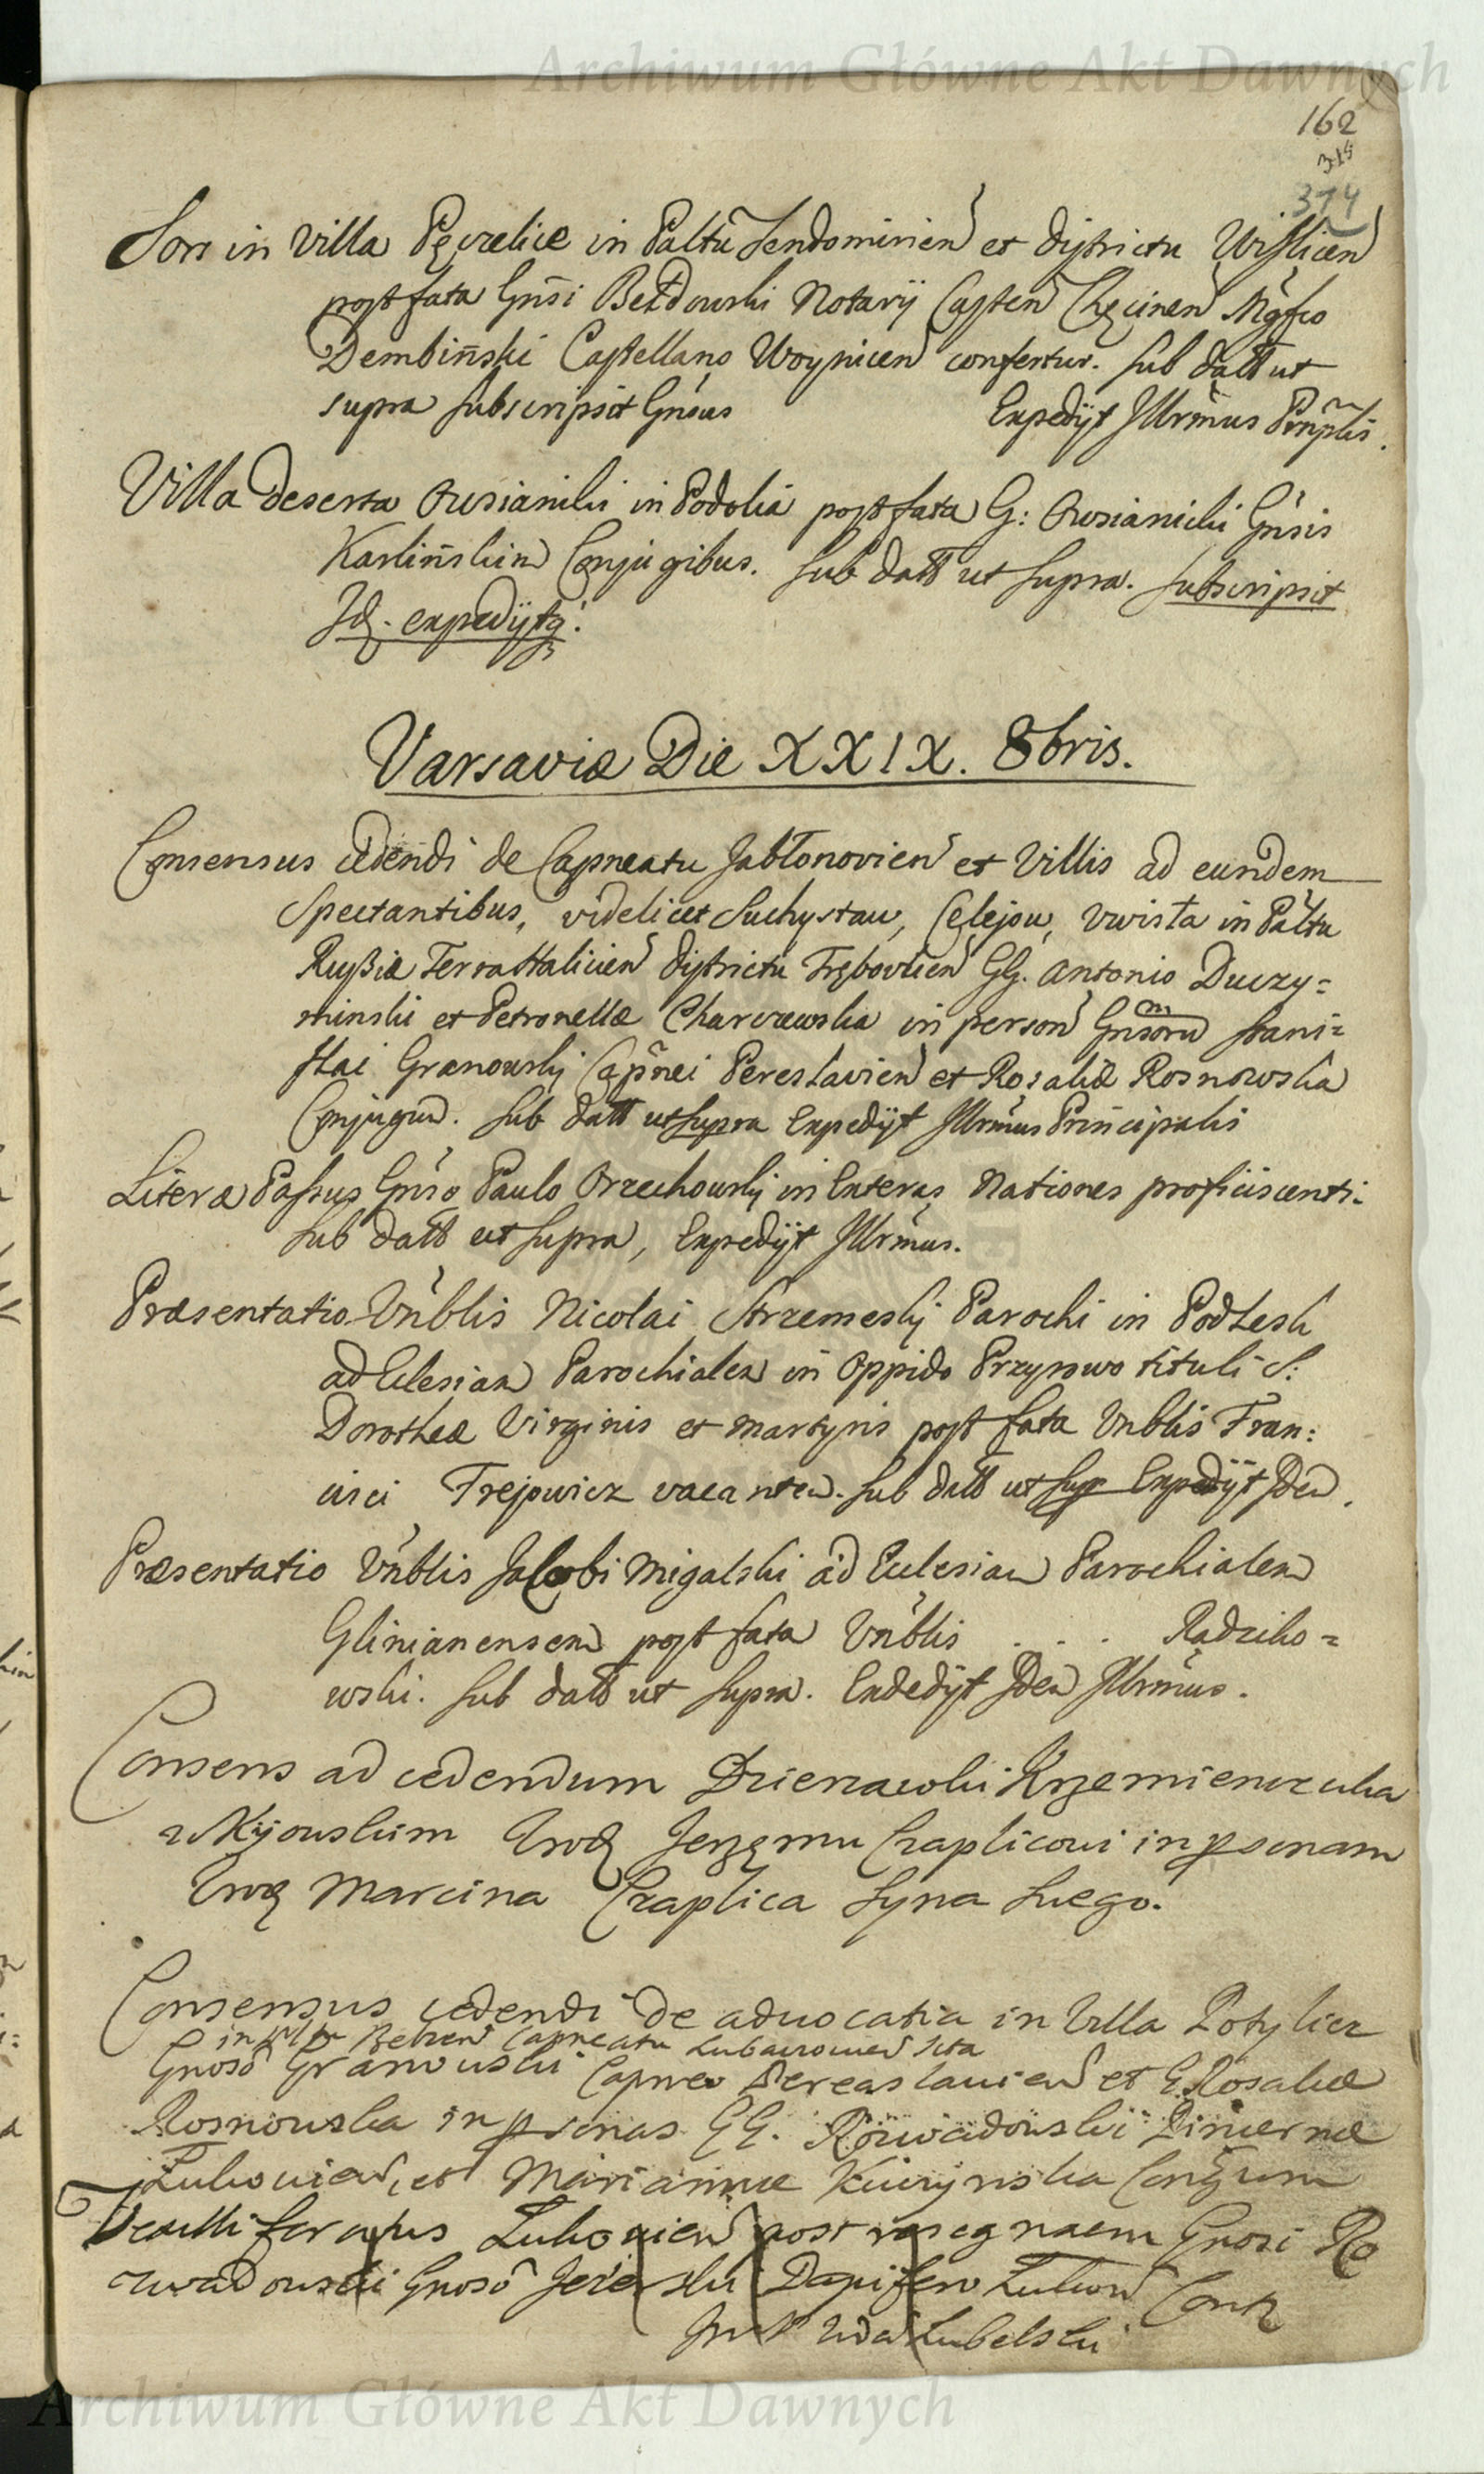 Archiwum Główne Akt Dawnych
162
314
374
Sors in Villa Pęczelice in Paltu Sendomirien et districtu Wislicen
post fata Gnsi Bełdowski Notarij Casten Chęcinen Mgfco
Dembiński Castellano Woynicen confertur. Sub datt ut
supra subscripsit Gnsus Expedijt Illrmus Prnplis.
Villa deserta Owsianiki in Podolia post fata G: Owsianicki Gnsis
Karlinskim Conjugibus. Sub datt ut supra. subscripsit
Id. expedijtq.
Varsaviæ Die XXIX. 8bris.
Consensus cedendi de Capneatu Jabłonovien et Villis ad eundem
Spectantibus, videlicet Suchystaw, Celejow, Uwisła in Paltu
Rußiæ Terra Halicien districtu Trębovlien GG. Antonio Duczy=
minski et Petronellæ Charczewska in person Gnsoru Stani=
slai Granowskj Capnei Pereslavien et Rosaliæ Rosnowska
Conjugum. Sub datt ut supra Expedijt Illrmus Principalis
Literæ Passus Gnso Paulo Orzechowskj in Exteras Nationes proficiscenti.
Sub datt ut supra, Expedijt Illrmus.
Præsentatio Vnblis Nicolai Strzemeskj Parochi in Podlesh
ad Eclesiam Parochialem in Oppido Przyrowo tituli S:
Dorotheæ Virginis et Martyris post fata Vnblis Fran:
cisci Trejowicz vacantem. Sub datt ut sup Expedijt Idem.
Præsentatio Vnblis Jacobi Migalski ad Eclesiam Parochialem
Glinianensem post fata Vnblis . . . Radziko=
wski. Sub datt ut supra. Exdedijt Idem Illrmus.
Consens ad cedendum Dzierzawki Krzemienczuka
w Kijowskim Urod Jerzęmu Czaplicowi in psonam
Urod Marcina Czaplica Syna Swego.
Consensus cedendi de advocatia in Villa Potylicz
in Paltu Belzen Capneatu Lubaczovien sita
Gnoso Granowski Capneo Pereaslavien et G. Rosaliæ
Rosnowska in psonas GG. Rozwadowski Pincernæ
Lukovien, et Mariannæ Kuczynska Conjgum
Vexilliferatus Lukovien post resegnaem Gnosi Ro
zwadowski Gnoso Jezierski Dapifero Lukow Conk
Lubelski
Archiwum Główne Akt Dawnych